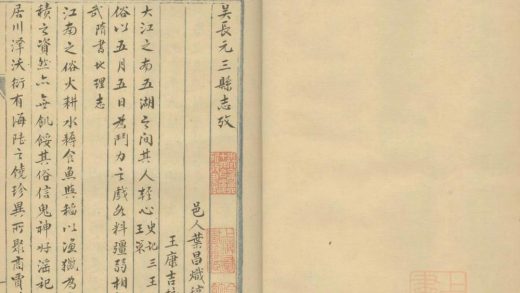 吴長元三縣志攷
邑人葉昌熾
王康吉
大江之南五湖之間其人輕心史記三王
俗以五月五日為鬥力之戲各料彊弱相
武隋書地理志
江南之俗火耕水耨食魚與稻以漁獵為
積之資然亦無飢餒其俗信鬼神好淫祀
居川澤沃衍有海陸之饒珍異所聚商賈